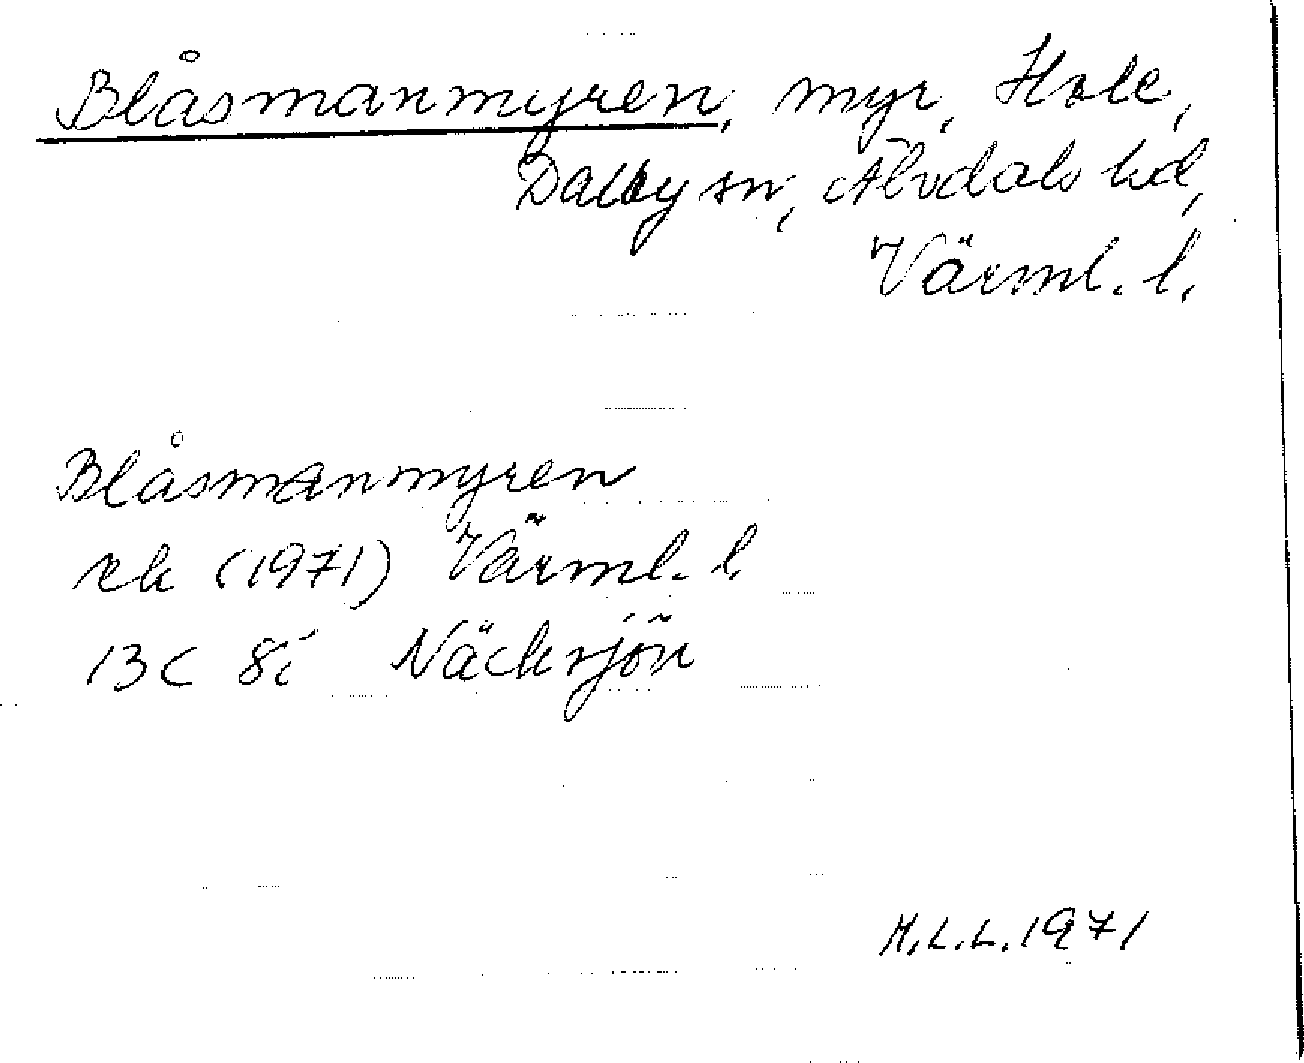 Blåsmanmyren, myr, Hole,
Dalby sn, Älvdals hd,
Värml. l.
Blåsmanmyren
rek (1971) Värml. l.
13C 8i Näcksjön
M.L.L. 1971